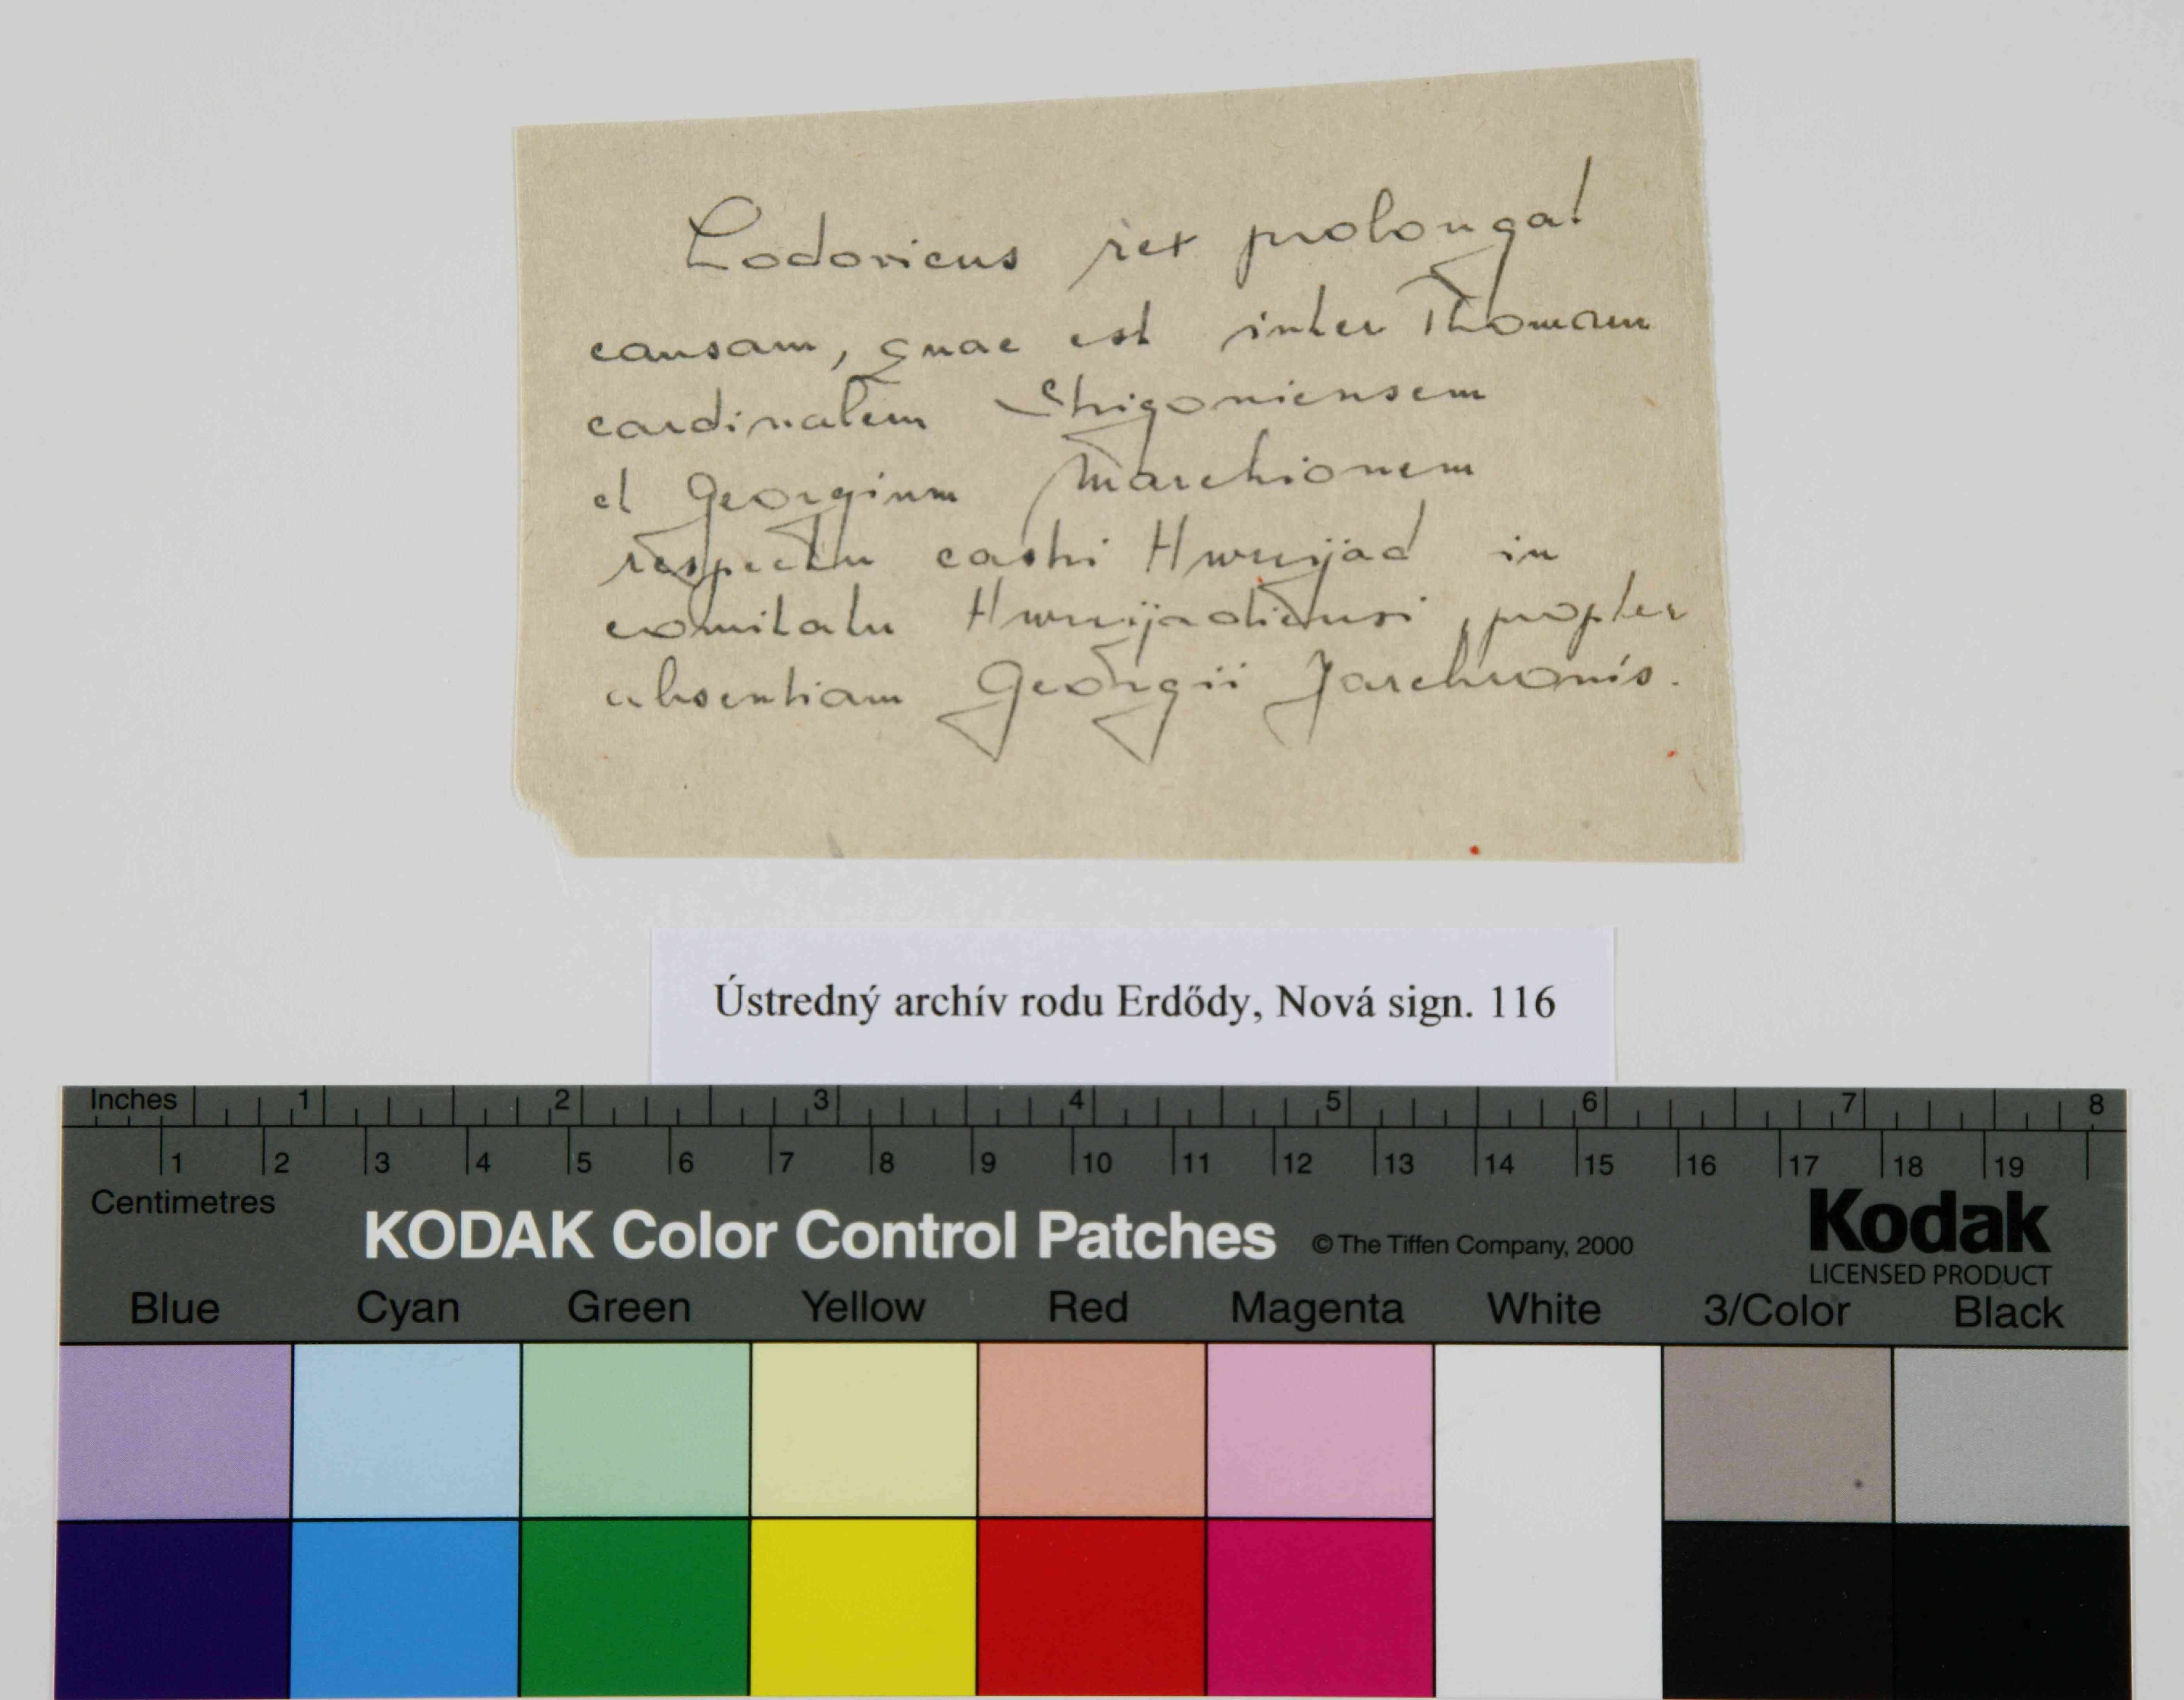 Lodovicus rex prolongat
causam, quae est inter Thomam
cardinalem Strigoniensem
et Georgium Marchionem
respectu castri Hwnijad in
comitatu Hwnijadiensi, propter
absentiam Georgii
Ústredný archív rodu Erdődy, Nová sign. 116
Inches 1 2 3 4 5 6 7 8
1 2 3 4 5 6 7 8 9 10 11 12 13 14 15 16 17 18 19
Centimetres
KODAK Color Control Patches © The Tiffen Company, 2000 Kodak
LICENSED PRODUCT
Blue Cyan Green Yellow Red Magenta White 3/Color Black